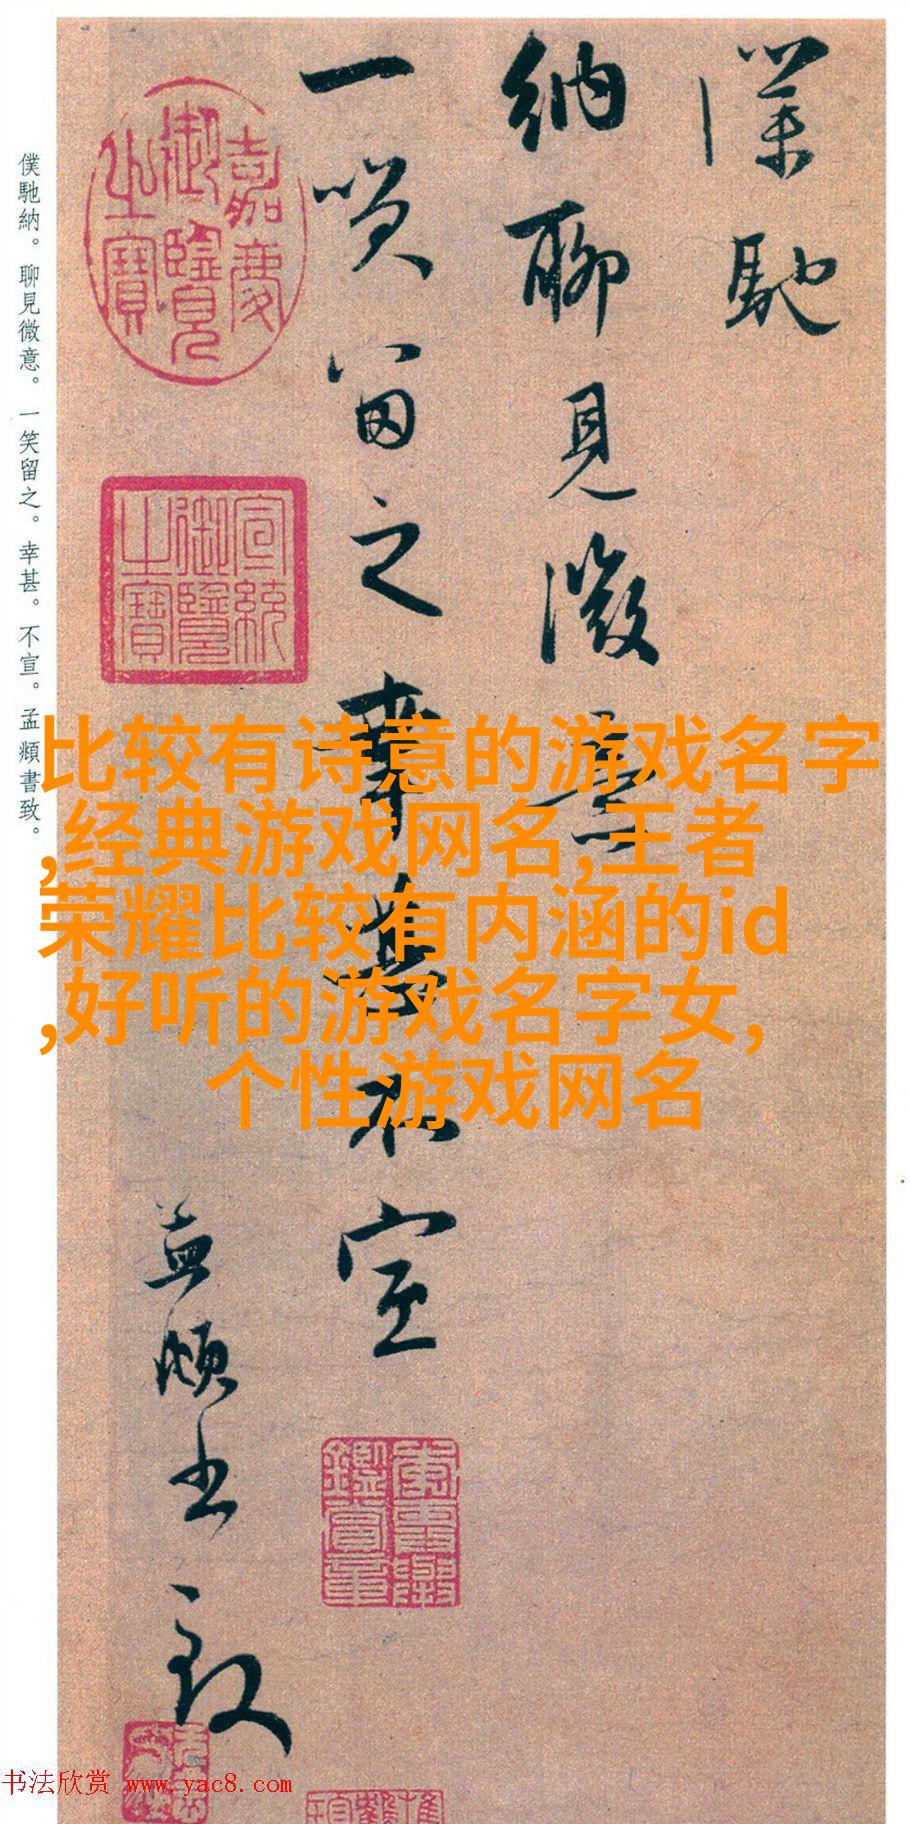 僕馳
納聊見微意
一笑留之幸甚不宣
孟頫書致
嘉慶御覽之寶
宣統御覽之寶
僕馳納。聊見微意。一笑留之。幸甚。不宣。孟頫書致。
比较有诗意的游戏名字
,经典游戏网名,王者
荣耀比较有内涵的id
,好听的游戏名字女,
个性游戏网名
书法欣赏 www.yac8.com